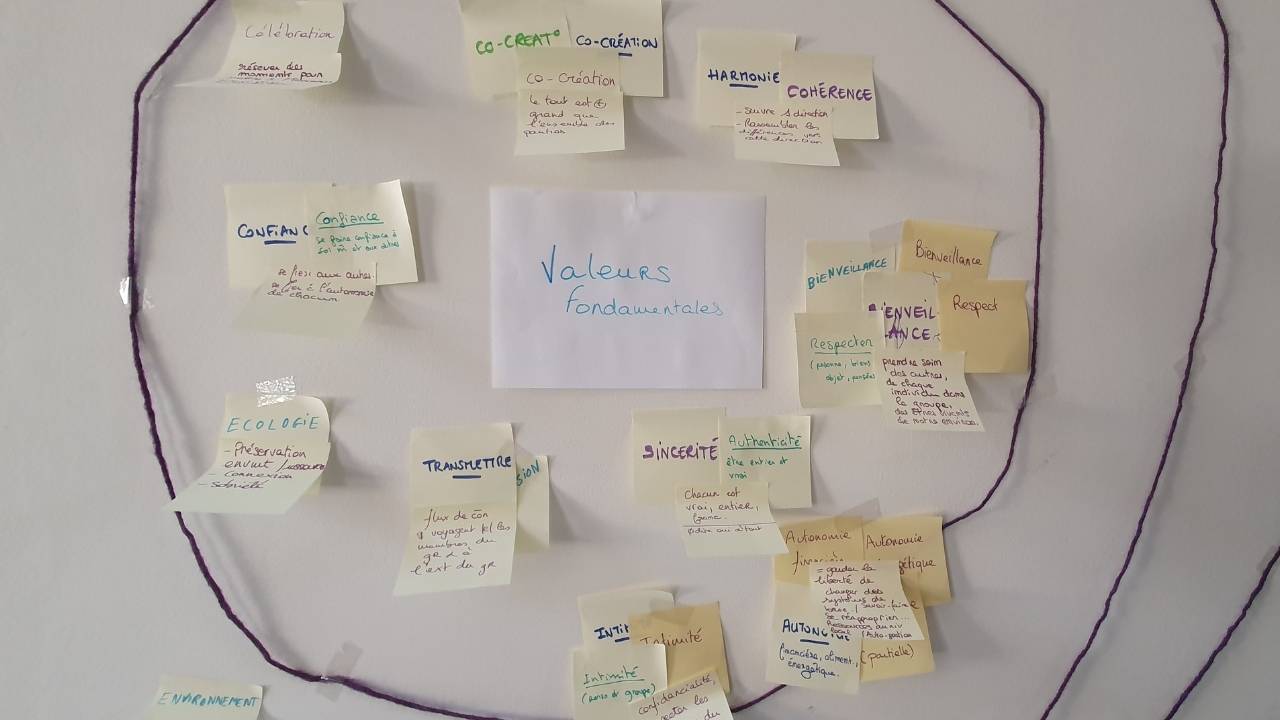 Célébration
réserver des
moments pour
CO-CREAT°
CO-CRÉATION
co-création
le tout est ⊕
grand que
l'ensemble des
parties
HARMONIE
COHÉRENCE
- suivre 1 direction
- Rassembler les
différences vers
cette direction
CONFIANC
Confiance
se faire confiance à
soi m̂ et aux autres
se fier aux autres
se fier à l'autonomie
de chacun
Valeurs
fondamentales
BIENVEILLANCE
Bienveillance
BIENVEIL-
LANCE
Respect
Respecter
(personne, biens
objet, pensées)
prendre soin
des autres,
de chaque
individu dans
le groupe,
des êtres vivants
de notre environ.
ECOLOGIE
- Préservation
envmt / ressources
- connexion
- sobriété
TRANSMETTRE
SION
flux de
voyagent les
membres du
gR & à
l'ext du gR
SINCERITÉ
Authenticité
être entier et
vrai
Chacun est
vrai, entier,
Autonomie
Autonomie
gétique
= garder la
liberté de
changer des
systèmes de
/ savoir-faire
se réapproprier...
Ressources au niv
local / Auto-gestion
AUTONOMIE
financière, aliment.,
énergétique.
(partielle)
INTI
Intimité
Intimité
(perso et groupe)
confidencialité,
les
du
ENVIRONNEMENT